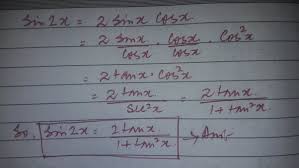 Sin2x = 2 Sinx Cosx
= 2 Sinx/Cosx · Cosx/Cosx · Cos²x
= 2 tanx · Cos²x
= 2tanx/Sec²x = 2tanx/1+tan²x
So, Sin2x = 2tanx/1+tan²x →